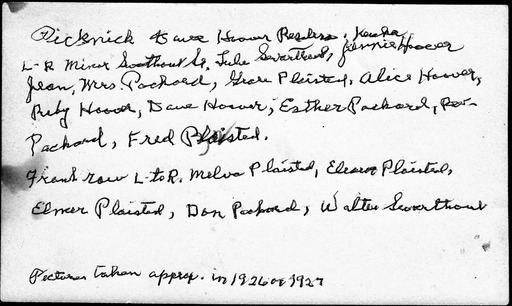 Picknick Dave Hoover Residence, Keuka,
L-R Minor Swarthout Sr, Jule Swarthout, Jennie Hoover
Jean, Mrs. Packard, Grace Plaisted, Alice Hoover,
Ruby Hoover, Dave Hoover, Esther Packard,
Packard, Fred Plaisted.
Front row L-to R. Melva Plaisted, Eleanor Plaisted,
Elmer Plaisted, Don Packard, Walter Swarthout
Pictures taken approx. in 1926 or 1927